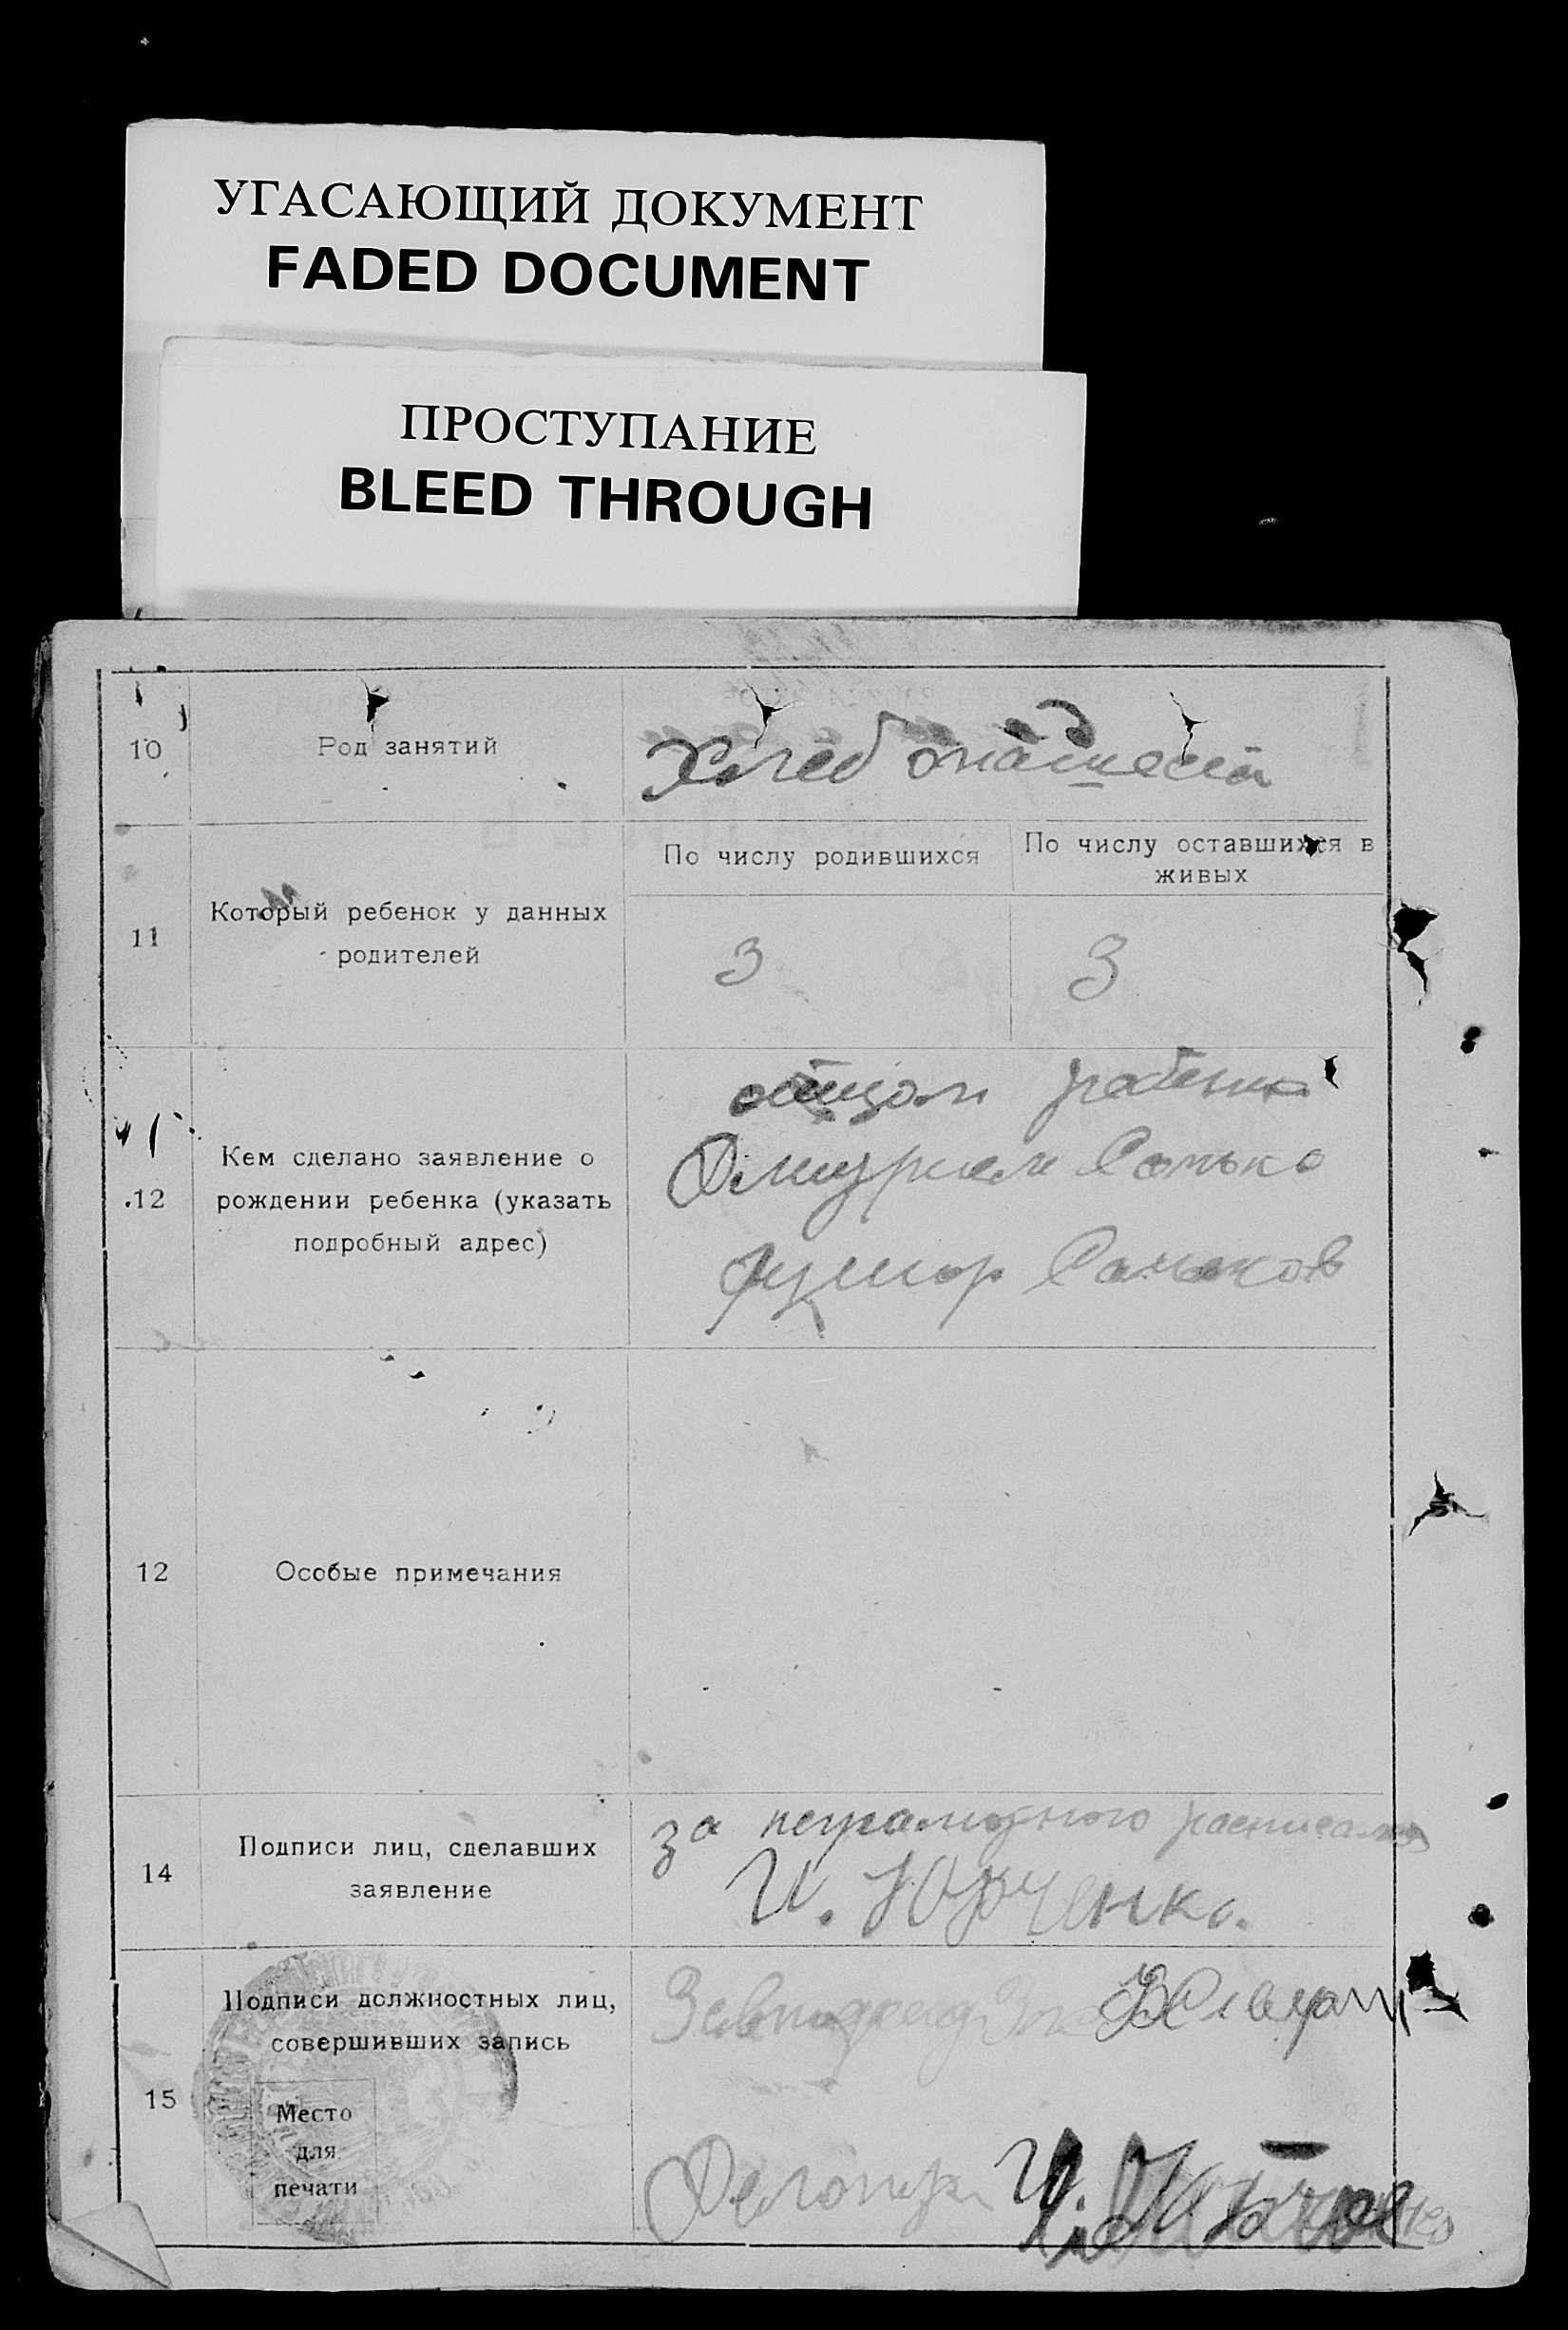 УГАСАЮЩИЙ ДОКУМЕНТ
FADED DOCUMENT
ПРОСТУПАНИЕ
BLEED THROUGH
10
Род занятий
Хлебопашест
11
Который ребенок у данных
родителей
По числу родившихся
По числу оставшихся в
живых
3
3
.12
Кем сделано заявление о
рождении ребенка (указать
подробный адрес)
отцом ребенка
Дмитрием Сонько
хутор Соньков
12
Особые примечания
14
Подписи лиц, сделавших
заявление
за неграмотного расписался
И. Юрченко.
15
Подписи должностных лиц,
совершивших запись
Место
для
печати
Делопр. И.